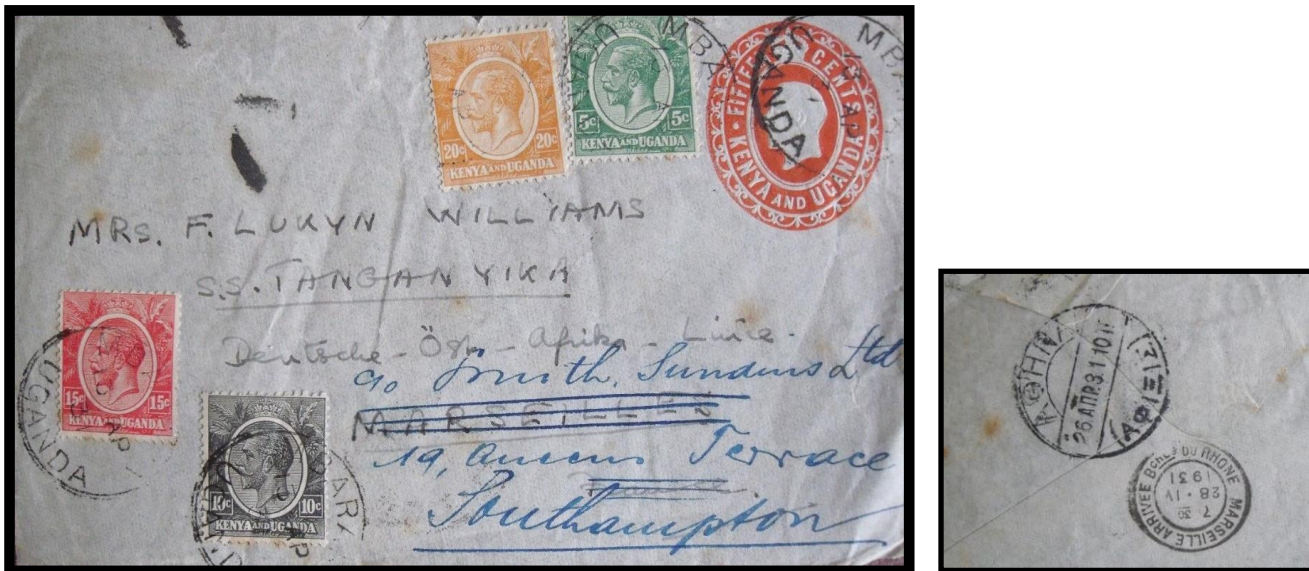 20c 20c
KENYA AND UGANDA
5c 5c
KENYA AND UGANDA
FIFTEEN CENTS
KENYA AND UGANDA
UGANDA
MRS. F. LUKYN WILLIAMS
S.S. TANGANYIKA
Deutsche - Öst - Afrika - Linie.
c/o Smith, Sundius Ltd
MARSEILLES
19, Queens Terrace
Southampton
15c 15c
KENYA AND UGANDA
UGANDA
10c 10c
KENYA AND UGANDA
ΑΘΗΝΑΙ
26 ΑΠΡ 31 10
MARSEILLE ARRIVEE BCHES DU RHONE
28 · IV
1931